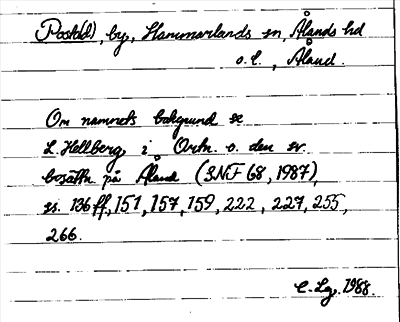 (Postad), by, Hammarlands sn, Ålands hd
o. l., Åland.
Om namnets bakgrund se
L. Hellberg i Ortn. o. den sv.
bosättn. på Åland (SNF 68, 1987),
ss. 136 ff, 151, 157, 159, 222, 227, 255,
266.
C. Lg. 1988.